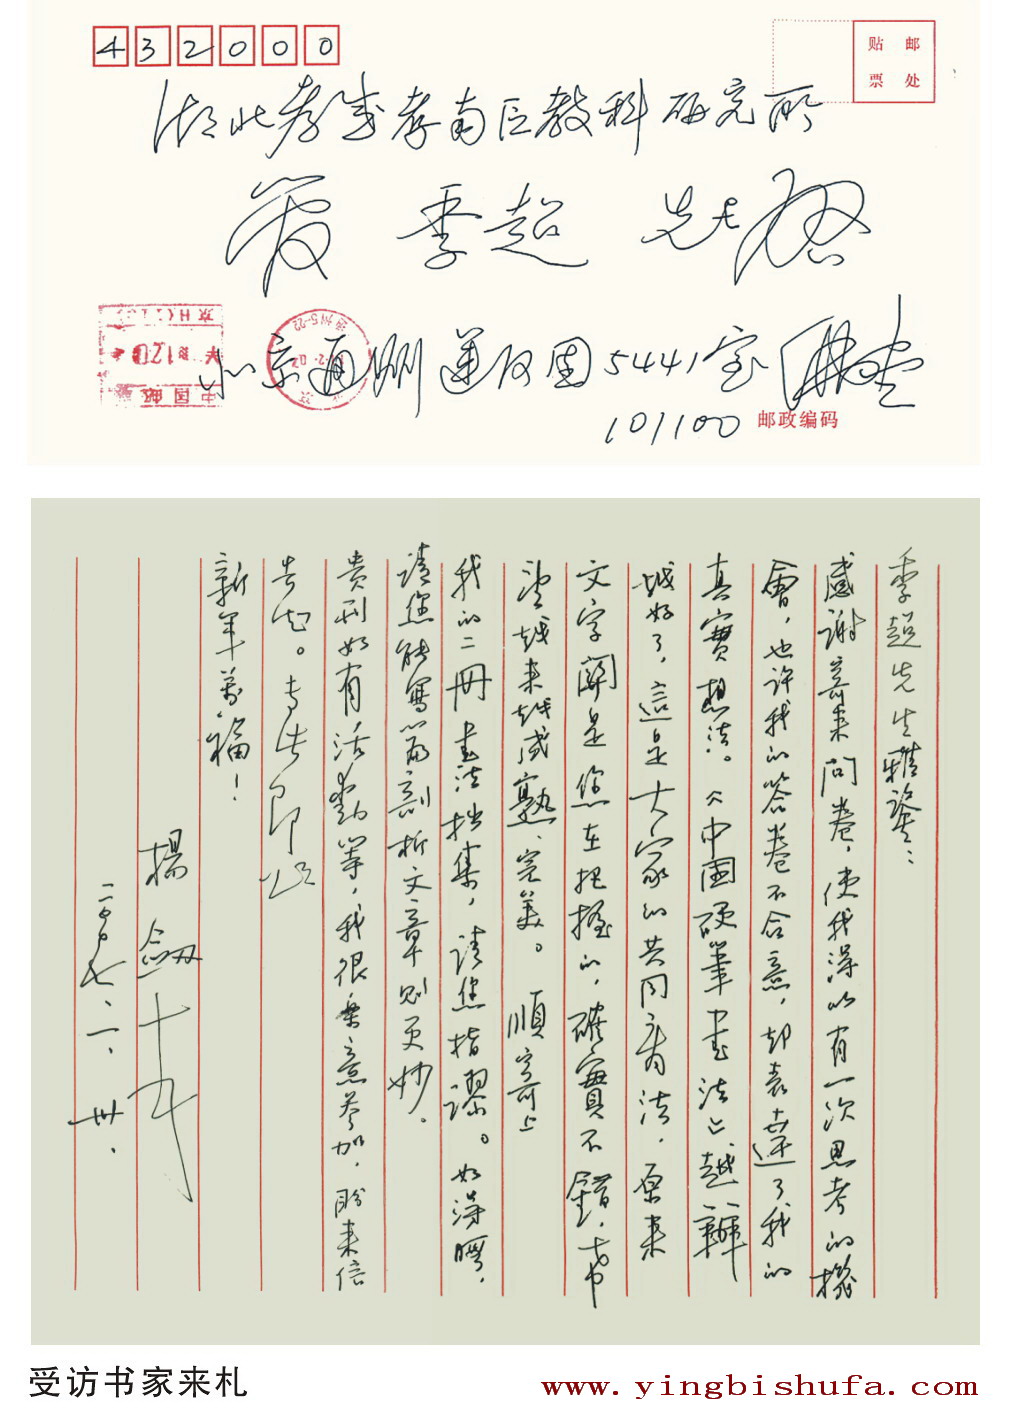 432000
贴 邮
票 处
湖北孝感孝南区教科研究所
季超 先生 启
北京通州运河园5441室
101100
邮政编码
中国邮
季超先生雅鉴：
感谢寄来问卷，使我得以有一次思考的機
會，也许我的答卷不合意，却表達了我的
真實想法。《中国硬筆书法》越辦
越好了，這是大家的共同看法，原来
文字關是您在把握的，確實不錯，希
望越来越成熟、完美。順寄上
我的二冊书法拙集，请您指謬。如得暇，
请您能寫篇剖析文章则更妙。
贵刊如有活動等，我很乐意参加，盼来信
告知。专此即頌
新年萬福！
楊劔十九
二〇〇七、一、卅、
受访书家来札
www.yingbishufa.com